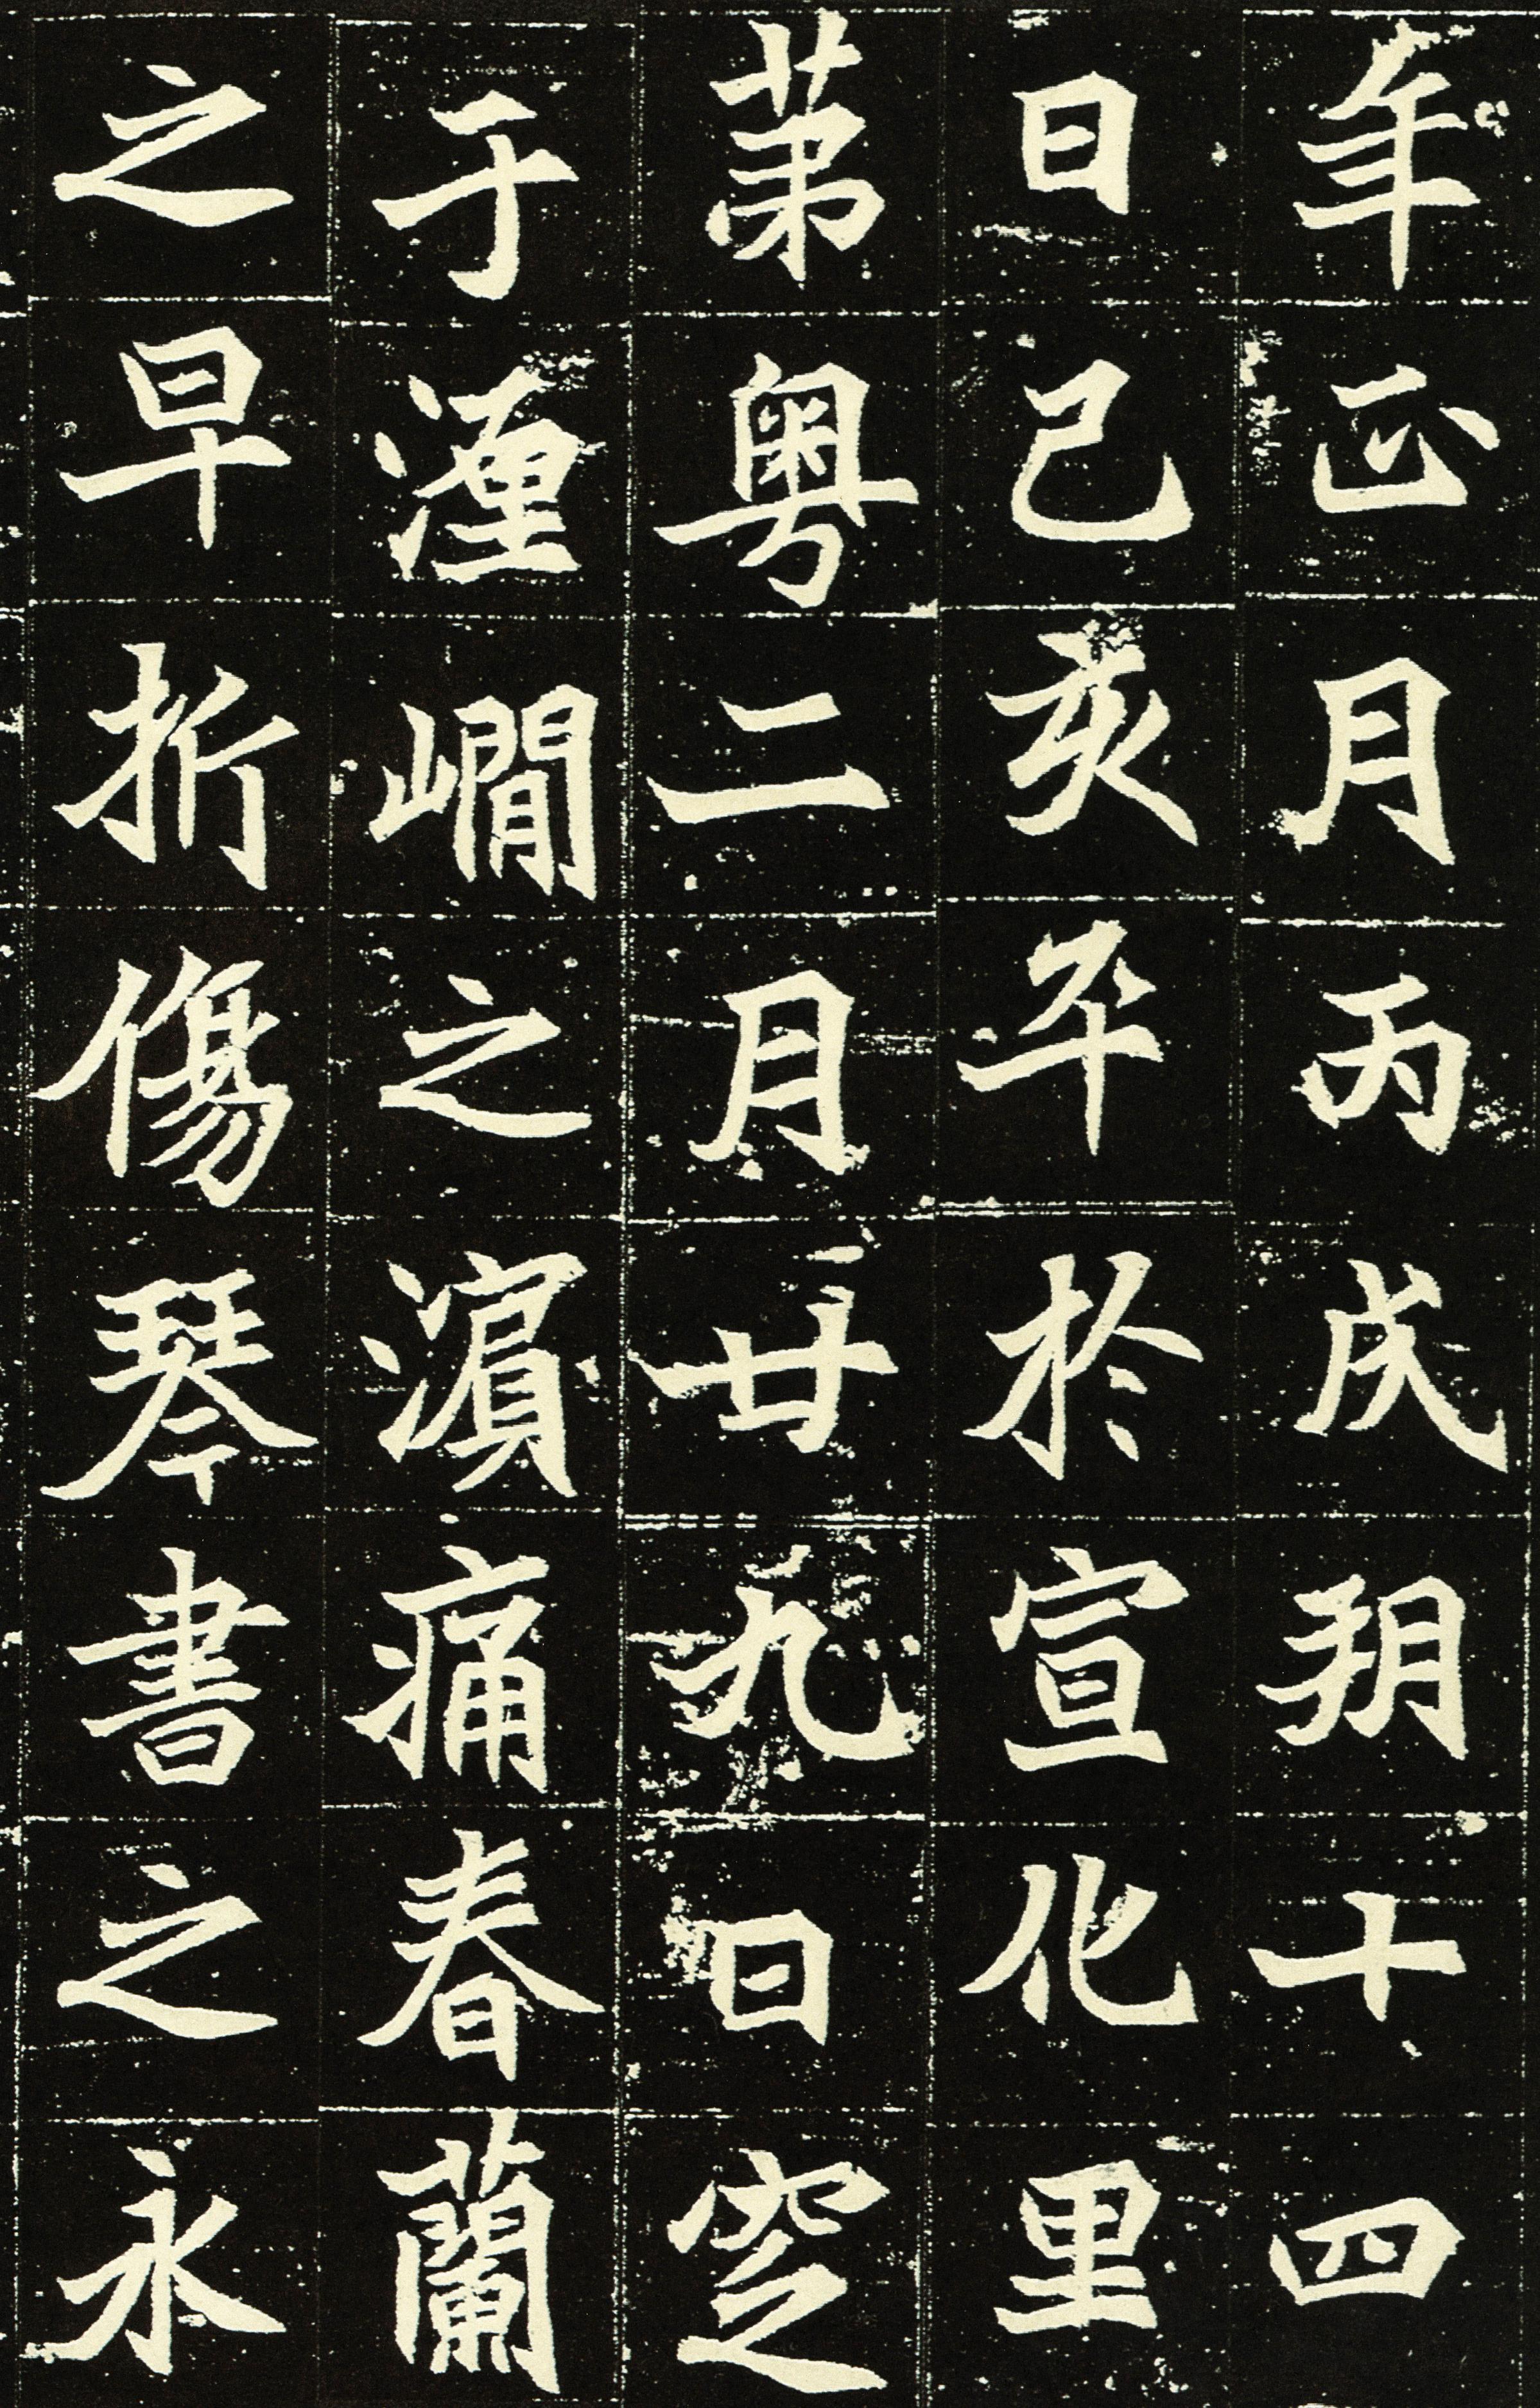 年正月丙戌朔十四
日己亥卒於宣化里
苐粤二月廿九日窆
于瀍㵎之濵痛春蘭
之早折傷琴書之永